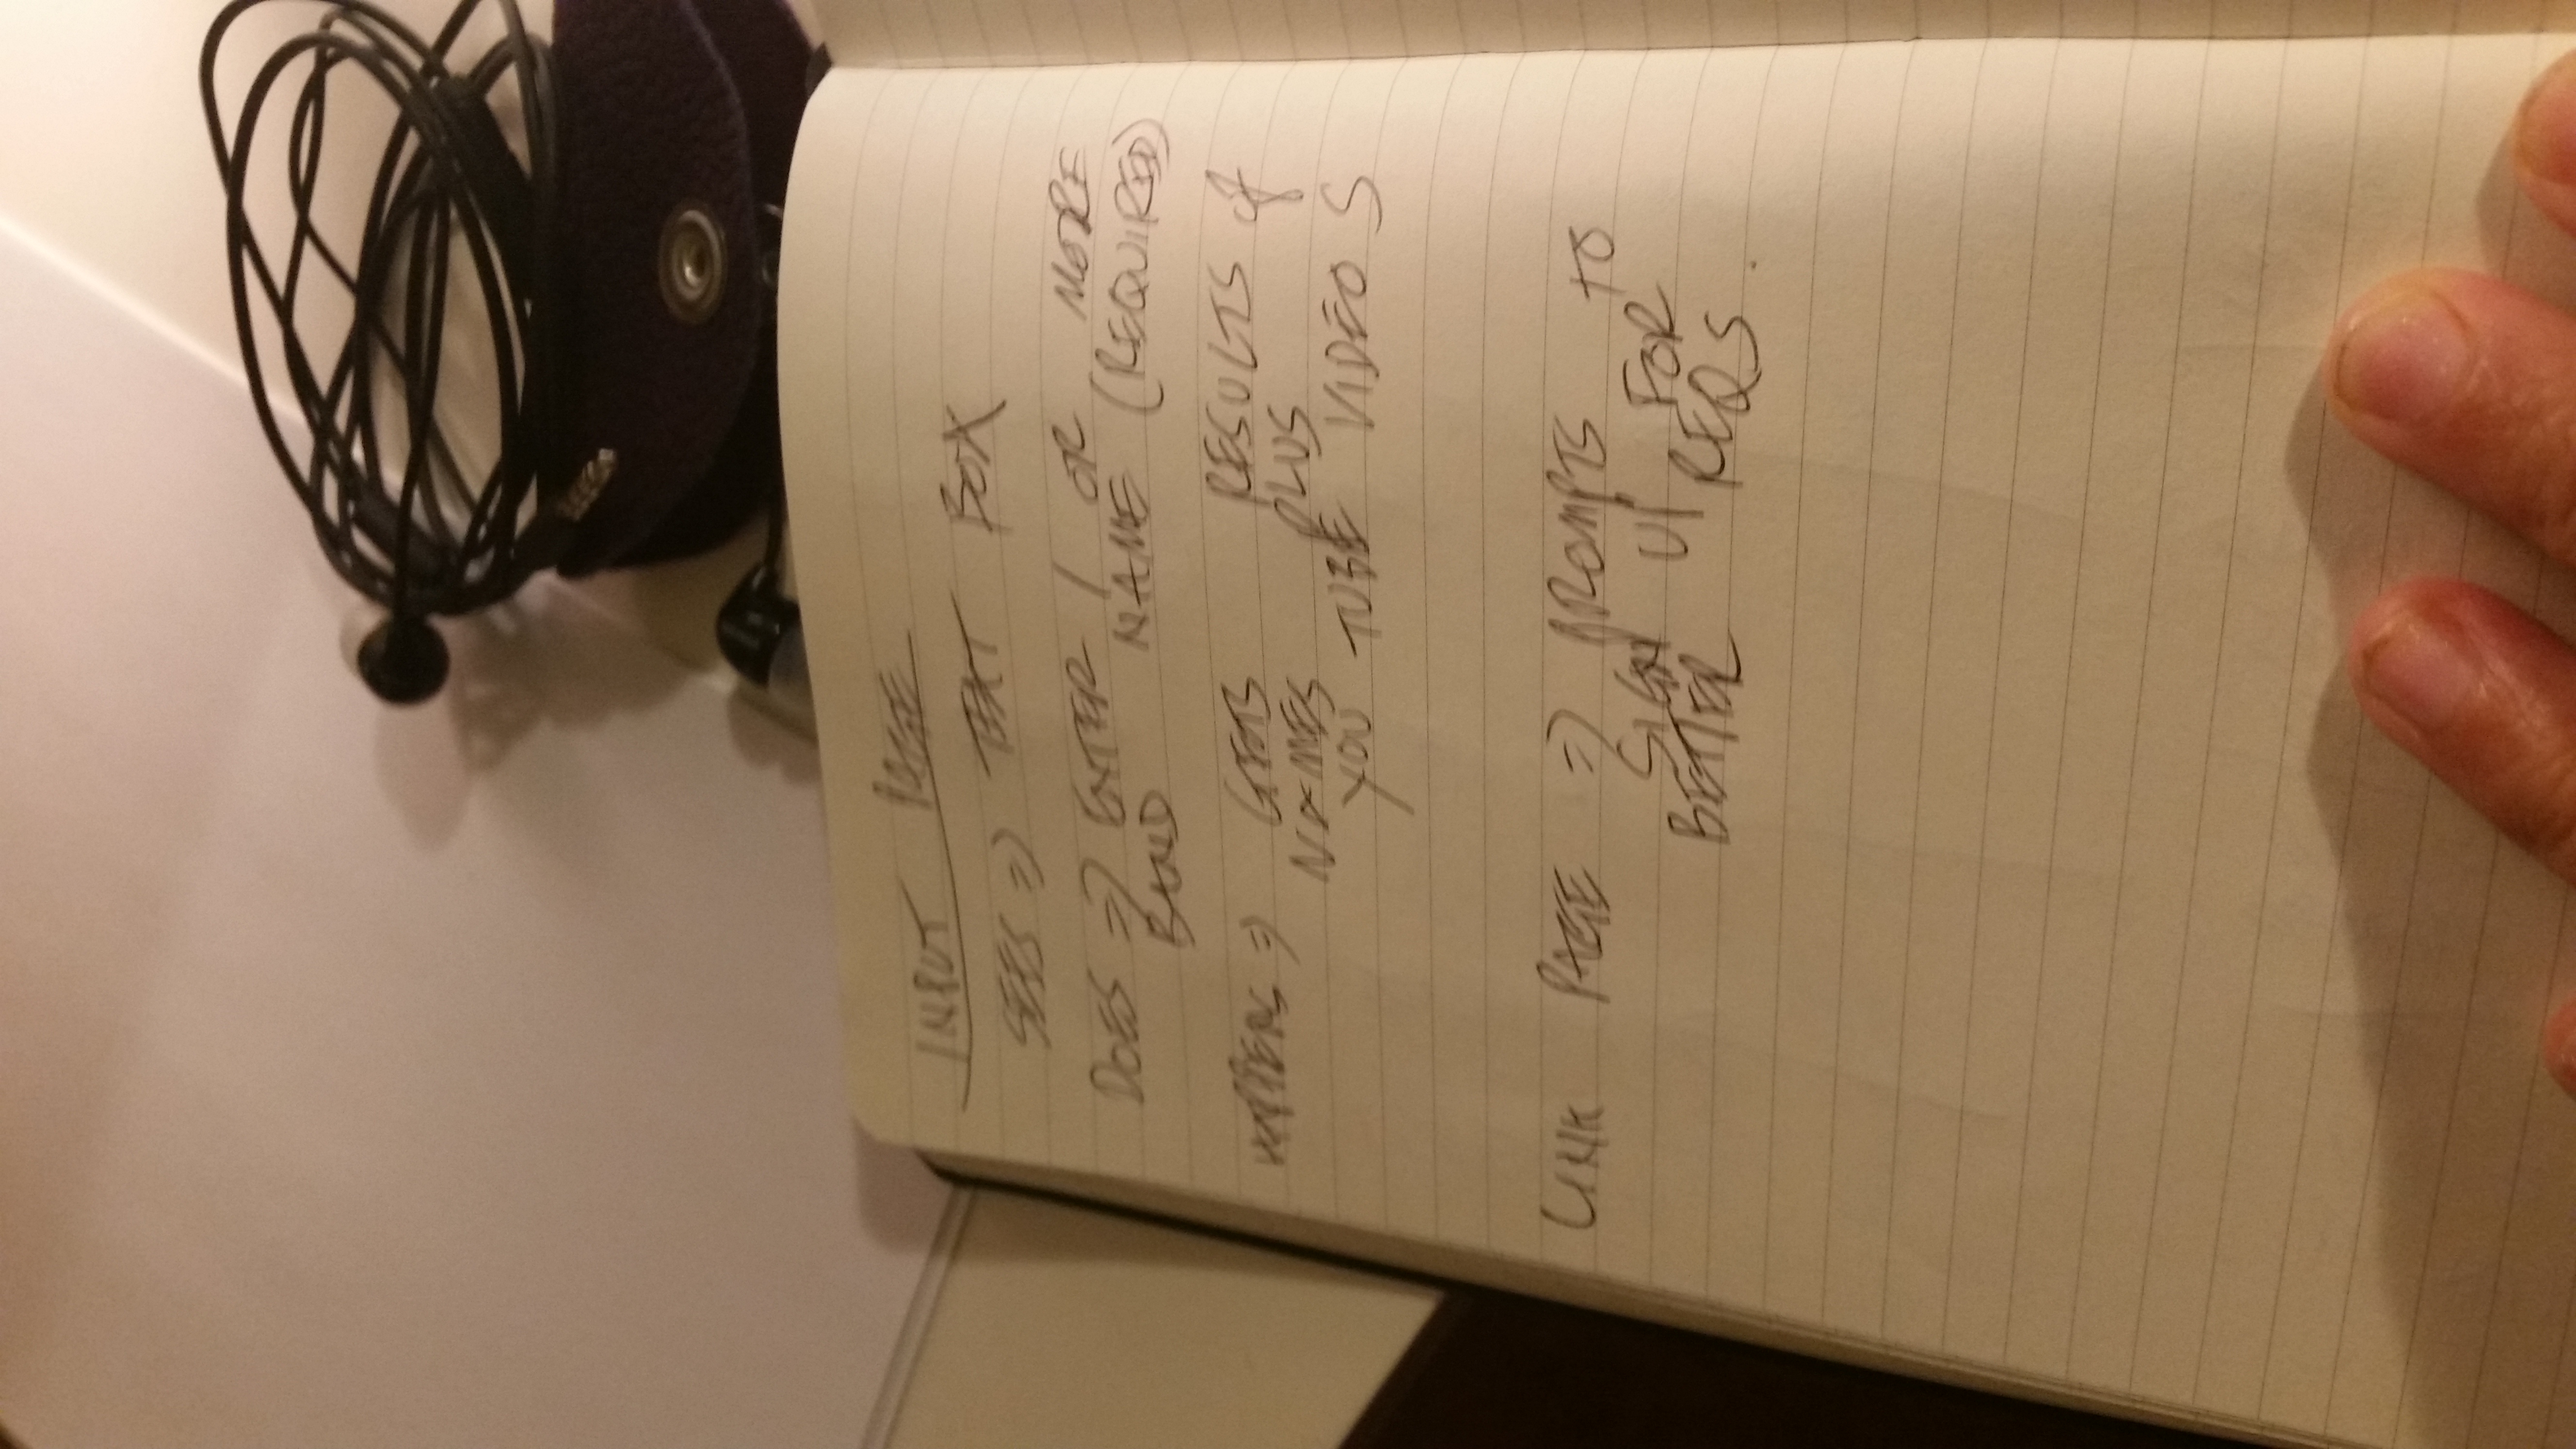 INPUT PAGE
SEES => TEXT BOX
DOES => ENTER 1 OR MORE
BAND NAME (REQUIRED)
HAPPENS => GETS RESULTS of
NAMES PLUS
YOU TUBE VIDEOS
LINK PAGE => PROMPTS TO
SIGN UP FOR
BETTER REQS.